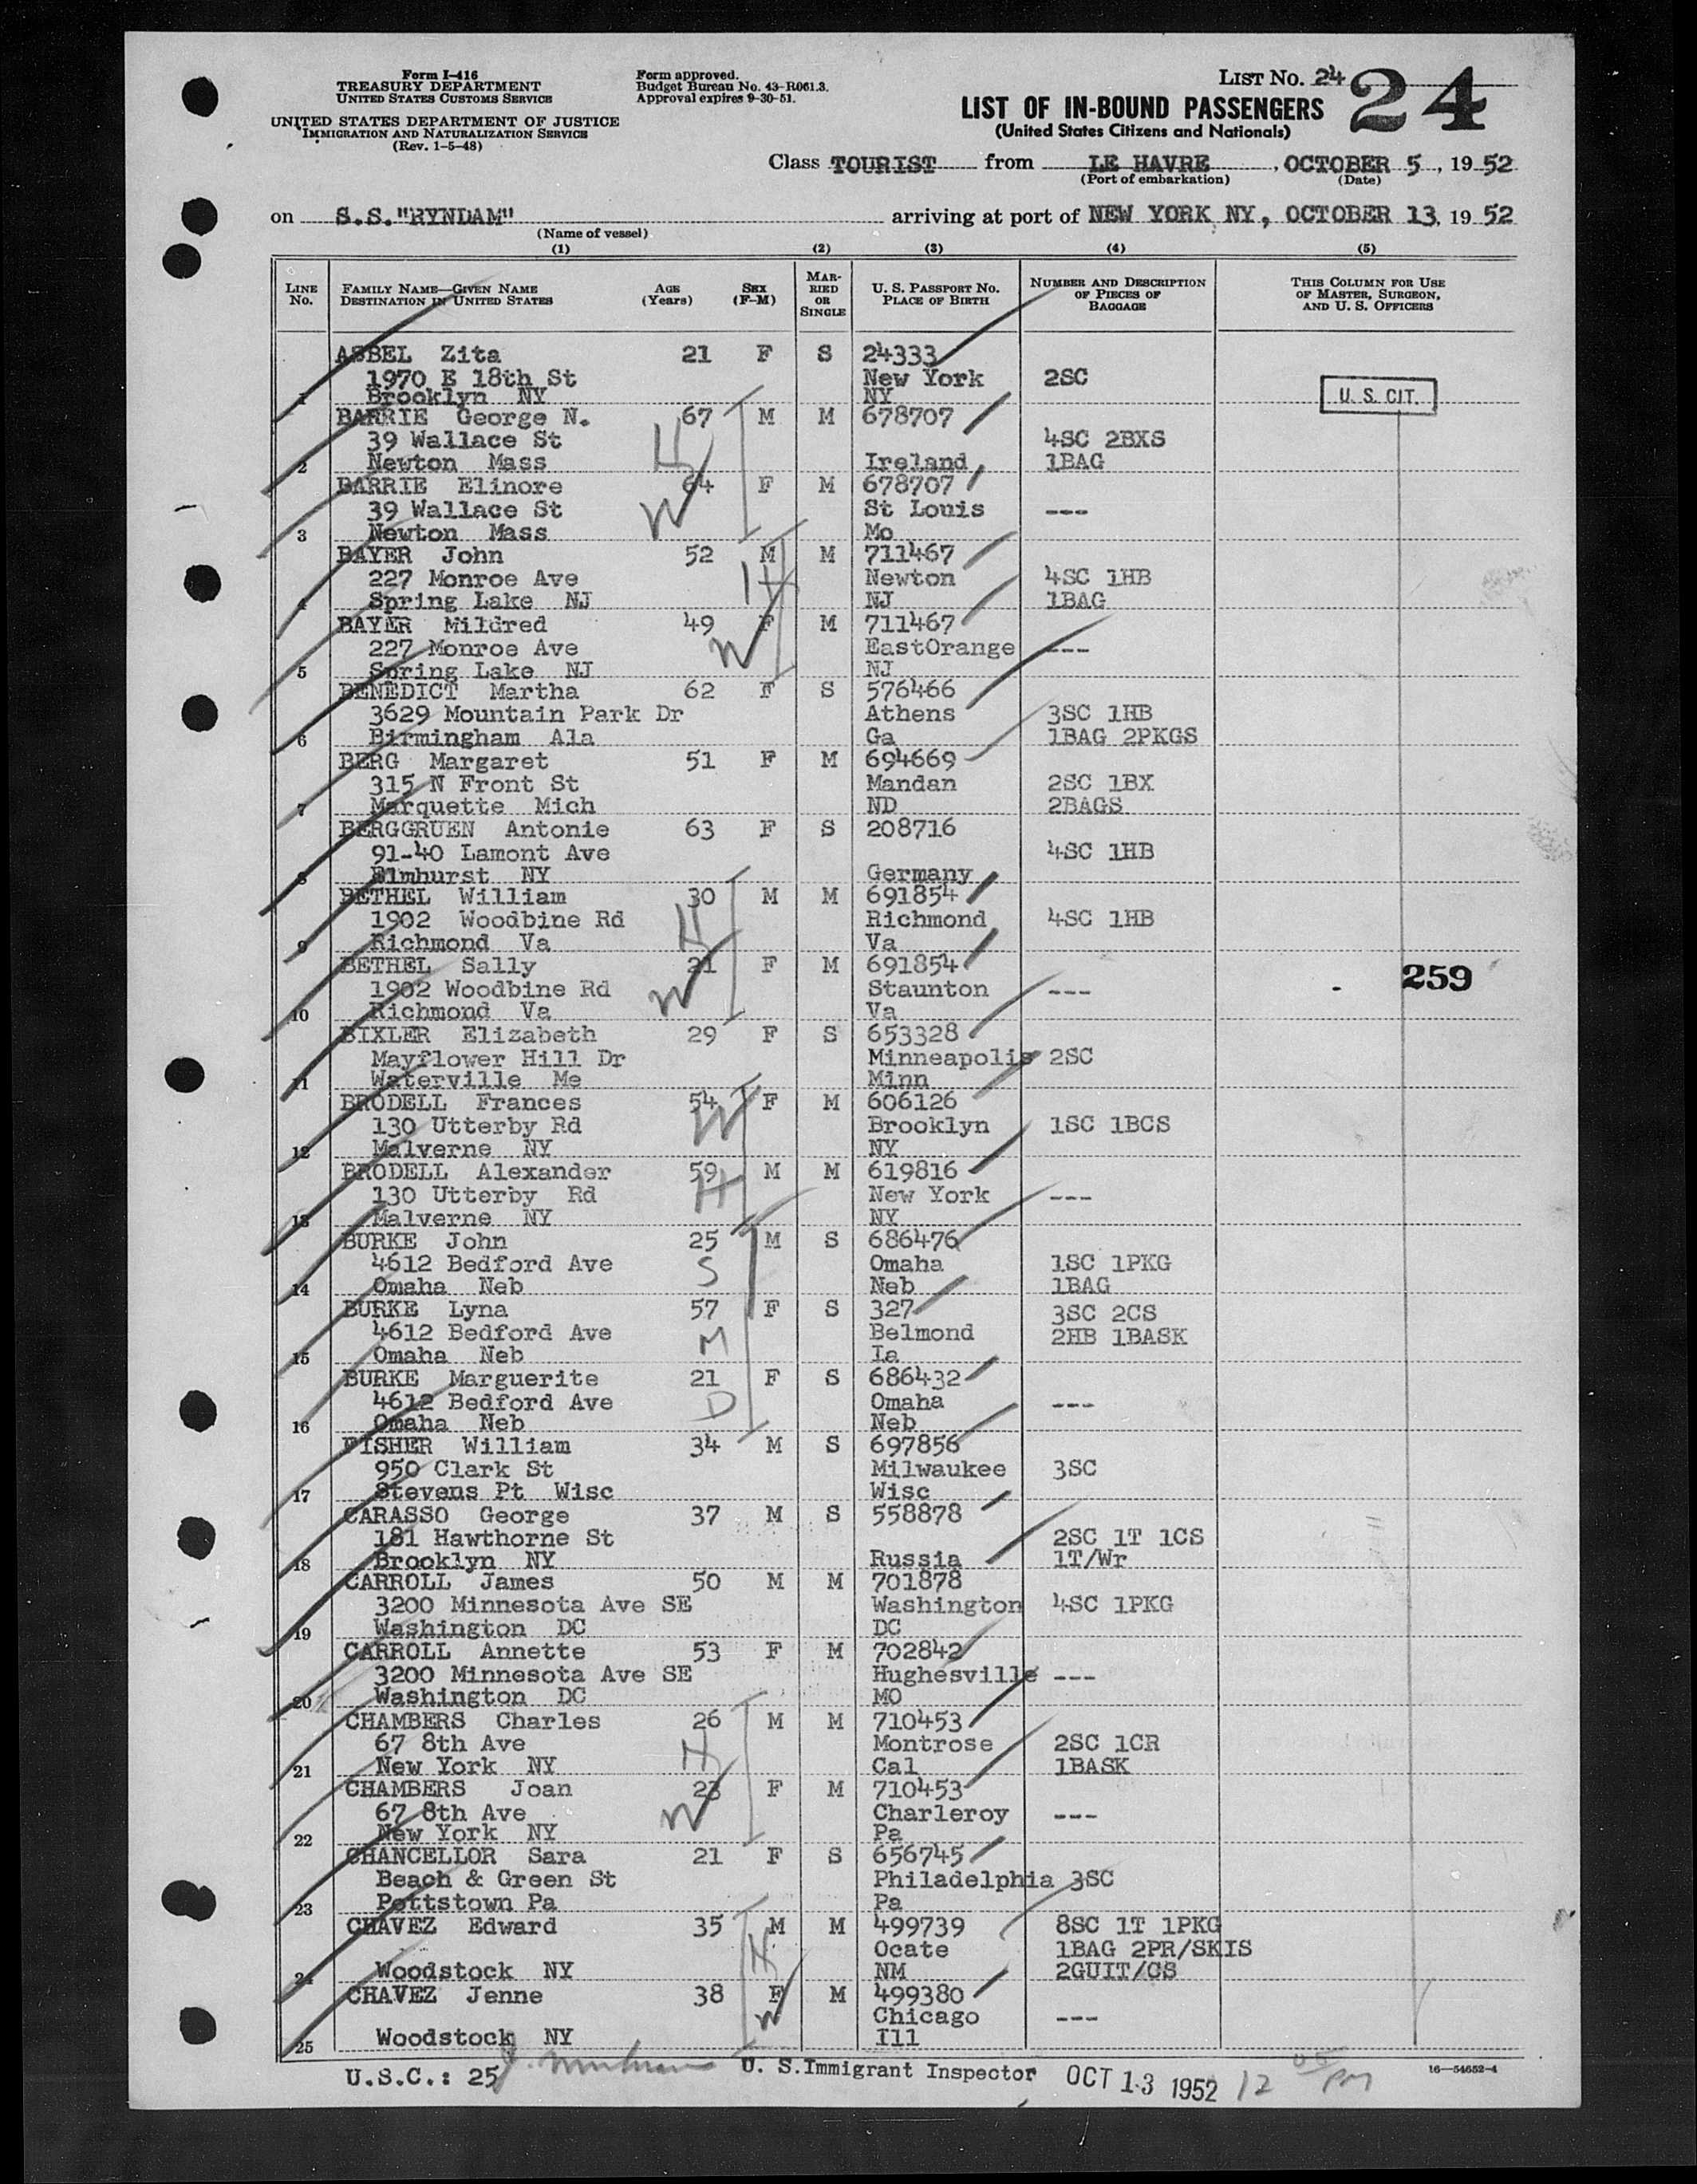 Form I-416
TREASURY DEPARTMENT
UNITED STATES CUSTOMS SERVICE
UNITED STATES DEPARTMENT OF JUSTICE
IMMIGRATION AND NATURALIZATION SERVICE
(Rev. 1-5-48)
Form approved.
Budget Bureau No. 43-R061.3.
Approval expires 9-30-51.
LIST No. 24
24
LIST OF IN-BOUND PASSENGERS
(United States Citizens and Nationals)
Class TOURIST from LE HAVRE, OCTOBER 5, 1952
(Port of embarkation) (Date)
on S.S."RYNDAM" arriving at port of NEW YORK NY, OCTOBER 13, 1952
(Name of vessel)
(1) (2) (3) (4) (5)
LINE No. FAMILY NAME—GIVEN NAME DESTINATION IN UNITED STATES AGE (Years) SEX (F-M) MARRIED OR SINGLE U. S. PASSPORT NO. PLACE OF BIRTH NUMBER AND DESCRIPTION OF PIECES OF BAGGAGE THIS COLUMN FOR USE OF MASTER, SURGEON, AND U. S. OFFICERS
ASBEL Zita 21 F S 24333
1970 E 18th St New York 2SC
1 Brooklyn NY NY U. S. CIT.
BARRIE George N. 67 M M 678707
39 Wallace St H 4SC 2BXS
2 Newton Mass Ireland 1BAG
BARRIE Elinore 64 F M 678707
39 Wallace St W St Louis ---
3 Newton Mass Mo
BAYER John 52 M M 711467
227 Monroe Ave H Newton 4SC 1HB
4 Spring Lake NJ NJ 1BAG
BAYER Mildred 49 F M 711467
227 Monroe Ave W EastOrange ---
5 Spring Lake NJ NJ
BENEDICT Martha 62 F S 576466
3629 Mountain Park Dr Athens 3SC 1HB
6 Birmingham Ala Ga 1BAG 2PKGS
BERG Margaret 51 F M 694669
315 N Front St Mandan 2SC 1BX
7 Marquette Mich ND 2BAGS
BERGGRUEN Antonie 63 F S 208716
91-40 Lamont Ave 4SC 1HB
8 Elmhurst NY Germany
BETHEL William 30 M M 691854
1902 Woodbine Rd H Richmond 4SC 1HB
9 Richmond Va Va
BETHEL Sally 21 F M 691854
259
1902 Woodbine Rd W Staunton ---
10 Richmond Va Va
BIXLER Elizabeth 29 F S 653328
Mayflower Hill Dr Minneapolis 2SC
11 Waterville Me Minn
BRODELL Frances 54 F M 606126
130 Utterby Rd W Brooklyn 1SC 1BCS
12 Malverne NY NY
BRODELL Alexander 59 M M 619816
130 Utterby Rd H New York ---
13 Malverne NY NY
BURKE John 25 M S 686476
4612 Bedford Ave S Omaha 1SC 1PKG
14 Omaha Neb Neb 1BAG
BURKE Lyna 57 F S 327 3SC 2CS
4612 Bedford Ave M Belmond 2HB 1BASK
15 Omaha Neb Ia
BURKE Marguerite 21 F S 686432
4612 Bedford Ave D Omaha ---
16 Omaha Neb Neb
FISHER William 34 M S 697856
950 Clark St Milwaukee 3SC
17 Stevens Pt Wisc Wisc
CARASSO George 37 M S 558878
181 Hawthorne St 2SC 1T 1CS
18 Brooklyn NY Russia 1T/Wr
CARROLL James 50 M M 701878
3200 Minnesota Ave SE Washington 4SC 1PKG
19 Washington DC DC
CARROLL Annette 53 F M 702842
3200 Minnesota Ave SE Hughesville ---
20 Washington DC MO
CHAMBERS Charles 26 M M 710453
67 8th Ave H Montrose 2SC 1CR
21 New York NY Cal 1BASK
CHAMBERS Joan 23 F M 710453
67 8th Ave W Charleroy ---
22 New York NY Pa
CHANCELLOR Sara 21 F S 656745
Beach & Green St Philadelphia 3SC
23 Pottstown Pa Pa
CHAVEZ Edward 35 M M 499739 8SC 1T 1PKG
H Ocate 1BAG 2PR/SKIS
24 Woodstock NY NM 2GUIT/CS
CHAVEZ Jenne 38 F M 499380
W Chicago ---
25 Woodstock NY Ill
U.S.C.: 25 U. S. Immigrant Inspector OCT 13 1952 12 05 PM
16—54652-4